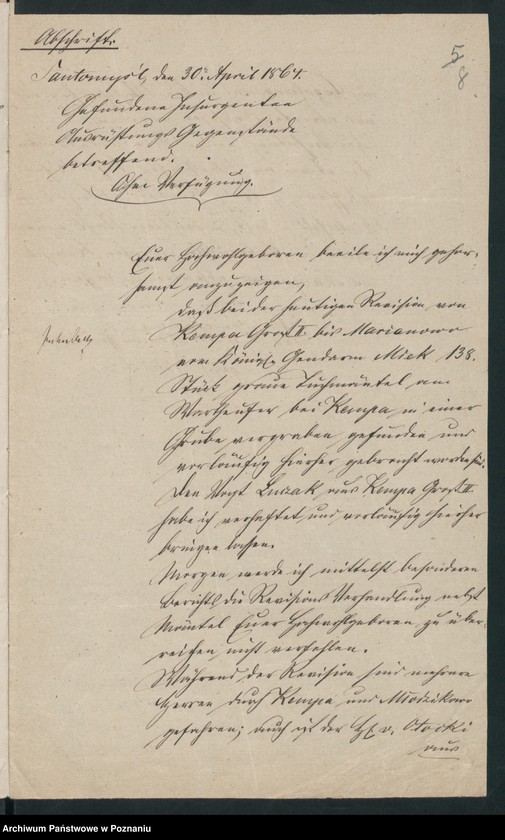 Abschrift.
5
8.
Santomysl, den 30ten April 1864.
Gefundene Insurgenten
Ausrüstungs Gegenstände
betreffend.
Ohne Verfügung.
Euer Hochwohlgeboren beeile ich mich gehor-
samst anzuzeigen,
daß bei der heutigen Revision von
Kempa Groß II bis Marianowo
vom Königl. Gendarm Miek 138.
Stück graue Tuchmäntel am
Wartheufer bei Kempa in einer
Grube vergraben gefunden und
vorläufig hierher gebracht worden sind.
Den Vogt Luczak aus Kempa Groß II
habe ich verhaftet und vorläufig hierher
bringen lassen.
Morgen werde ich mittelst besonderen
Berichts die Revisions Verhandlung nebst
Mäntel Euer Hochwohlgeboren zu über-
reichen nicht verfehlen.
Während der Revision sind mehrere
Herren durch Kempa und Mlodzikowo
gefahren; auch ist der H. v. Otocki
aus
Archiwum Państwowe w Poznaniu